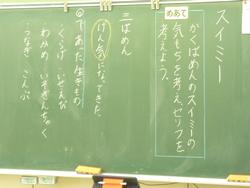 スイミー
めあて
かくばめんのスイミーの
気もちを考え、セリフを
考えよう。
三ばめん
けん気になってきた。
◎であった生きもの
くらげ いせえび
わかめ いそぎんちゃく
うなぎ こんぶ